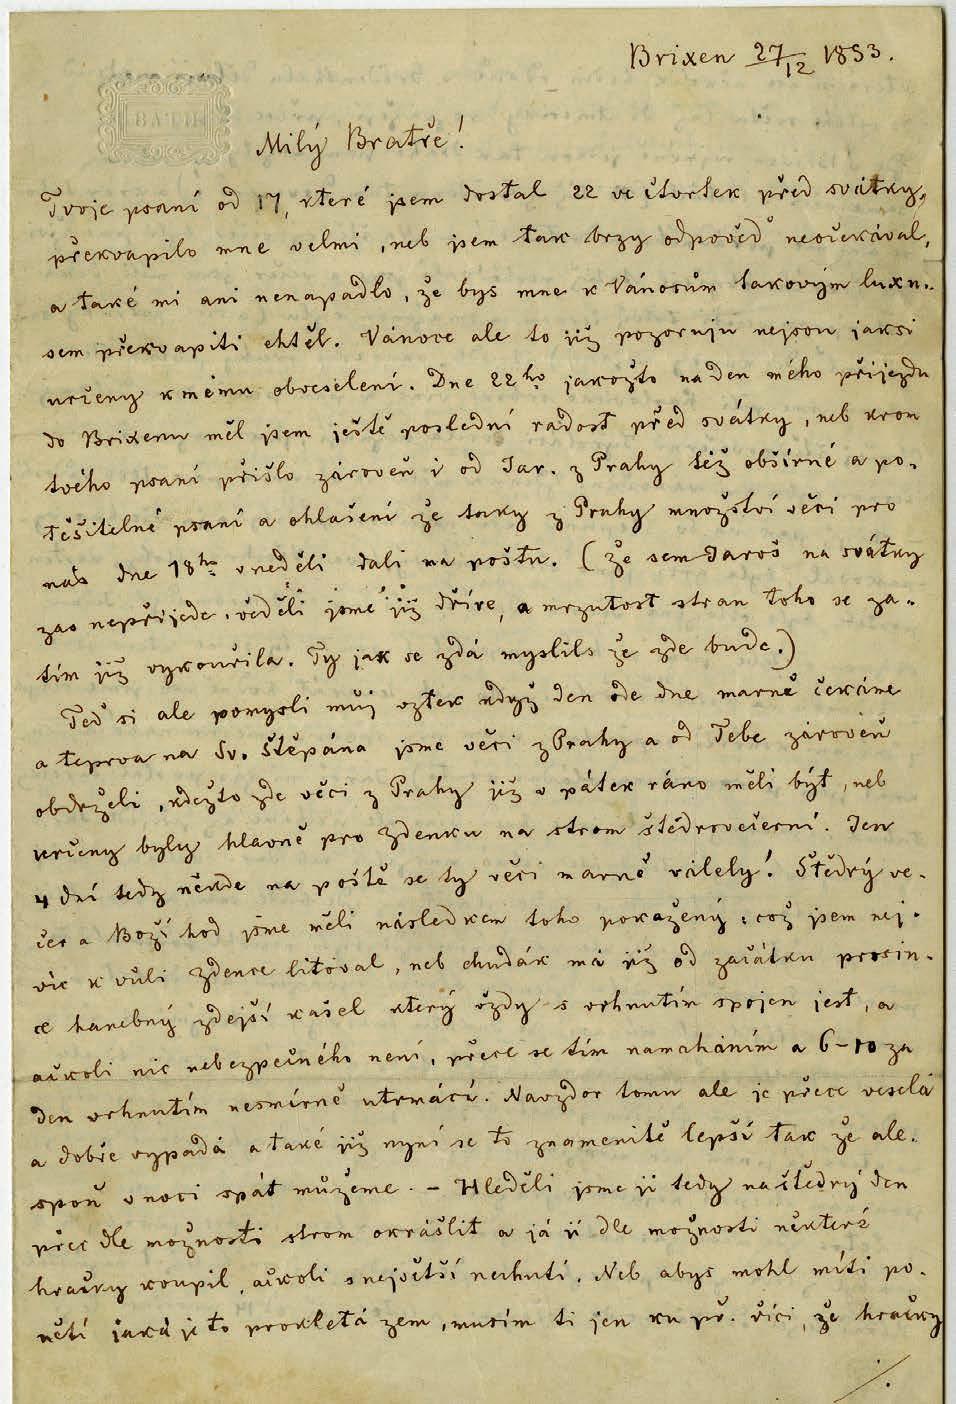 BATH
Brixen 27/12 1853.
Milý Bratře!
Tvoje psaní od 17, které jsem dostal 22 ve čtvrtek před svátky,
překvapilo mne velmi, neb jsem tak brzy odpověď neočekával,
a také mi ani nenapadlo, že bys mne k Vánocům takovým luxu-
sem překvapiti chtěl. Vánoce ale to již pozoruju nejsou jaksi
určeny k mému obveselení. Dne 22ho jakožto na den mého příjezdu
do Brixenu měl jsem ještě poslední radost před svátky, neb krom
tvého psaní přišlo zároveň i od Jar. z Prahy též obšírné a po-
těšitelné psaní a ohlašení že taky z Prahy množství věcí pro
nás dne 18ho v neděli dali na poštu. (že sem Jaroš na svátky
zas nepřijede, věděli jsme již dříve, a mrzutost stran toho se za-
tím již vykouřila. Ty jak se zdá myslils že zde bude.)
Teď si ale pomysli můj vztek když den ode dne marně čekáme
a teprva na Sv. Štěpána jsme věci z Prahy a od Tebe zároveň
obdrželi, kdežto zde věci z Prahy již v pátek ráno měli být, neb
určeny byly hlavně pro Zdenku na strom štědrovečerní. Jen
4 dní tedy někde na poště se ty věci marně válely! Štědrý ve-
čer a Boží hod jsme měli následkem toho pokažený, což jsem nej-
víc k vůli Zdence litoval, neb chudák má již od začátku prosin-
ce hanebný zdejší kašel který vždy s vrhnutím spojen jest, a
ačkoli nic nebezpečného není, přece se tím namaháním a 6-10 za
den vrhnutím nesmírně utrmácí. Navzdor tomu ale je přece veselá
a dobře vypadá a také již nyní se to znamenitě lepší tak že ale-
spoň v noci spát můžeme. - Hleděli jsme jí tedy na štědrý den
přec dle možnosti strom okrášlit a já jí dle možnosti některé
hračky koupil, ačkoli s největší nechutí. Neb abys mohl míti po-
nětí jaká je to prokletá zem, musím ti jen ku př. říci, že hračky
./.